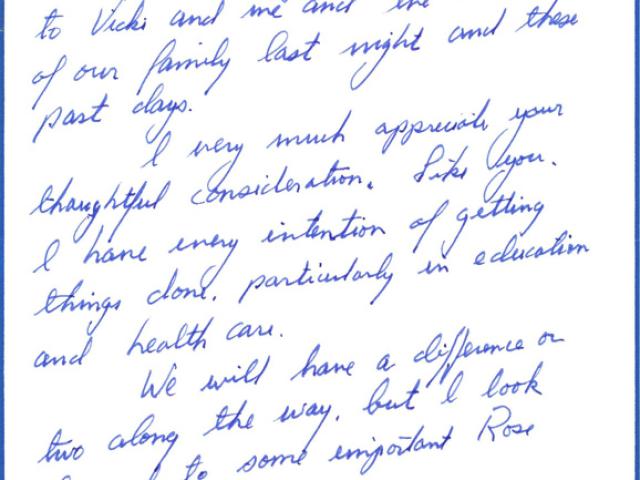 to Vicki and me and the
of our family last night and these
past days.
I very much appreciate your
thoughtful consideration. Like you.
I have every intention of getting
things done, particularly in education
and health care.
We will have a difference or
two along the way, but I look
to some important Rose